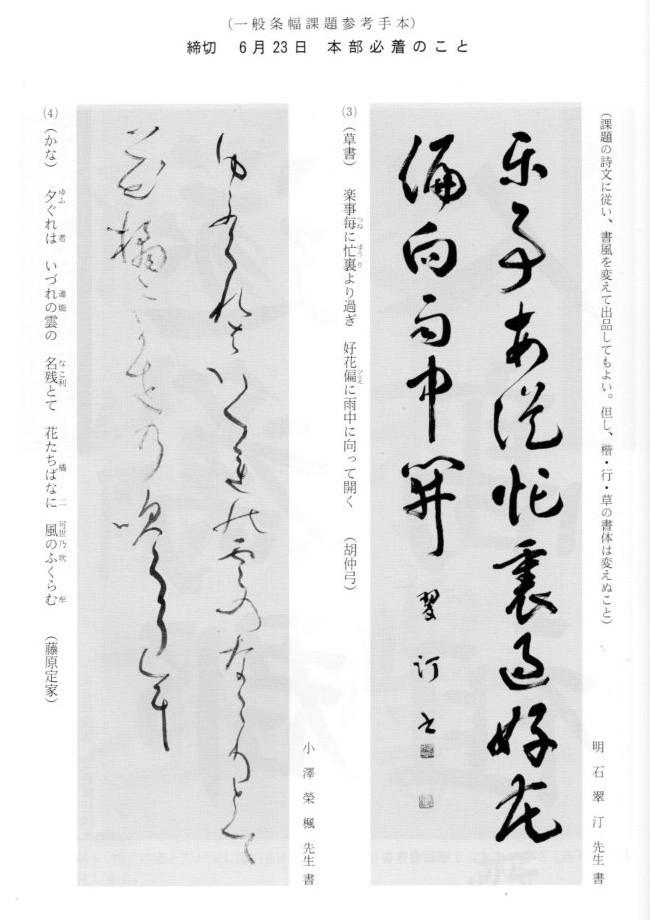 (一般条幅課題参考手本)
締切 6月23日 本部必着のこと
(課題の詩文に従い、書風を変えて出品してもよい。但し、楷・行・草の書体は変えぬこと)
明石翠汀先生書
楽事毎従忙裏過好花
偏向雨中開 翠汀書
(3) (草書) 楽事毎に忙裏より過ぎ 好花偏に雨中に向って開く (胡仲弓)
つね ぼうり ひとえ
小澤榮楓先生書
ゆふくれ者いつ連能雲のなこ利とて
花橘二可世乃吹くら牟
(4) (かな) 夕ぐれは いづれの雲の 名残とて 花たちばなに 風のふくらむ (藤原定家)
ゆふ 者 連能 なこ利 橘 二 可世乃吹 牟